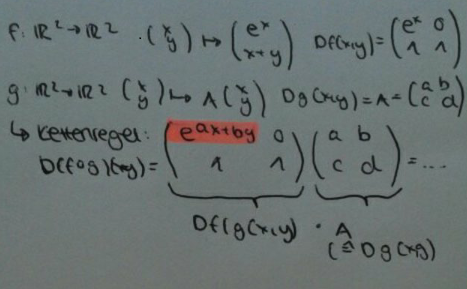 f: ℝ² → ℝ² . (x y) ↦ (e^x x+y) Df(x,y) = (e^x 0 1 1)
g: ℝ² → ℝ² (x y) ↦ A (x y) Dg(x,y) = A = (a b c d)
↳ Kettenregel: (e^{ax+by} 0 1 1) (a b c d) = ....
D(f∘g)(x,y) =
Df(g(x,y) · A
(≙ Dg(x,y)